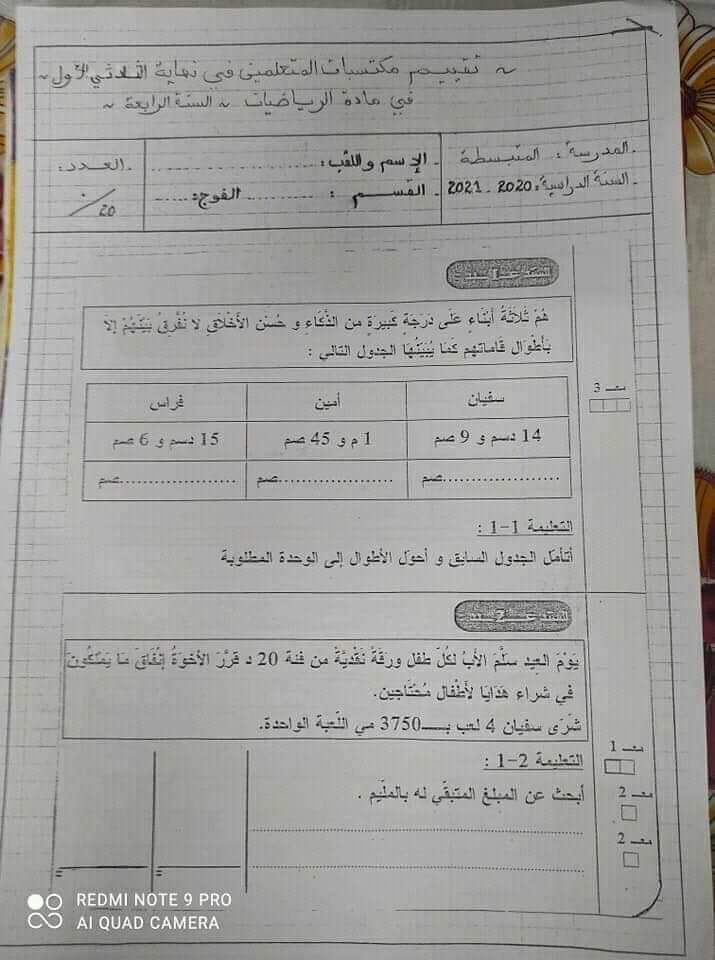 ~ تقييم مكتسبات المتعلمين في نهاية الثلاثي الأول ~
في مادة الرياضيات ~ السنة الرابعة ~
- المدرسة: المتبسطة
- السنة الدراسية: 2020 - 2021
- الإسم واللقب: ..............................
- القسم: .............. الفوج: ......
- العدد:
/20
السند عــ1ــدد
هُمْ ثَلَاثَةُ أَبْنَاءٍ عَلَى دَرَجَةٍ كَبِيرَةٍ مِن الذَّكَاءِ و حُسْنِ الأَخْلَاقِ لَا نُفَرِّقُ بَيْنَهُمْ إلَّا
بِأَطْوَالِ قَامَاتِهِم كَمَا يُبَيِّنُهَا الجدول التالي :
سفيان أمين فراس
14 دسم و 9 صم 1 م و 45 صم 15 دسم و 6 صم
....................صم ....................صم ....................صم
معـ 3
التعليمة 1-1 :
أتأمّل الجدول السابق و أحوّل الأطوال إلى الوحدة المطلوبة
السند عــ2ــدد
يَوْمَ العِيد سلَّمَ الأَبُ لكُلّ طفلٍ ورقَةً نَقْدِيَّةً من فئة 20 د قرَّرَ الأخوَةُ إنْفَاقَ مَا يَمْلِكُونَ
في شراء هَدَايَا لأَطْفَال مُحْتَاجين.
شَرَى سفيان 4 لعب بـــ3750 مي اللّعبة الواحدة.
التعليمة 2-1 :
أبحث عن المبلغ المتبقّي له بالملّيم .
معـ 1
معـ 2
معـ 2
............................................................
............................................................
= =
REDMI NOTE 9 PRO
AI QUAD CAMERA